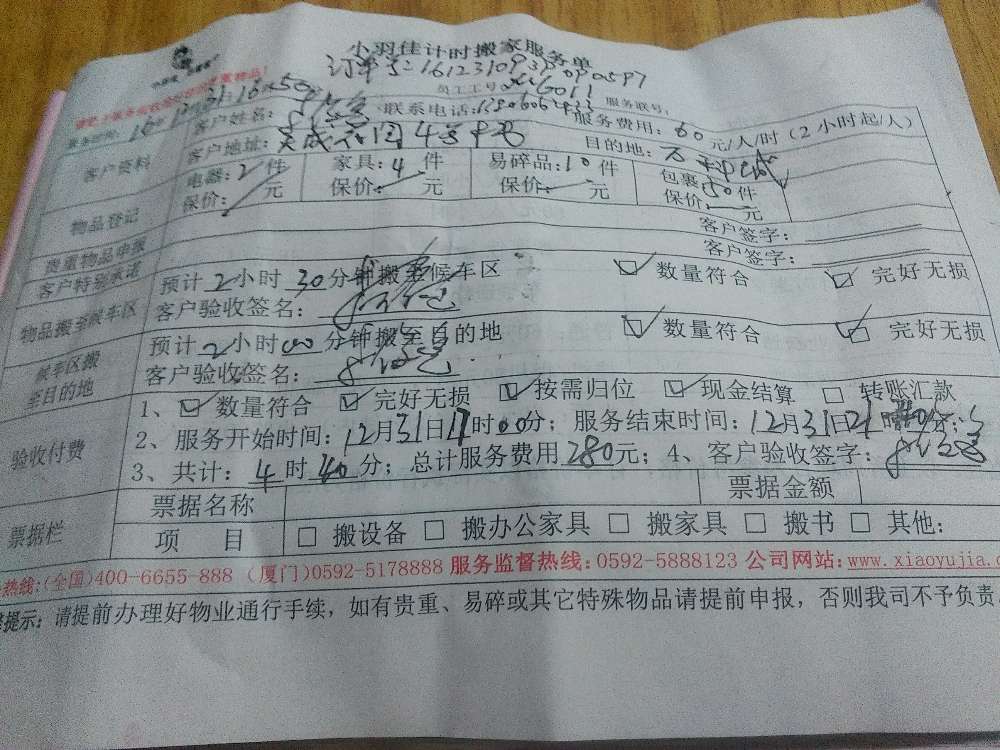 小羽佳计时搬家服务单
订单号:161231093
员工工号: 服务联号:
客户姓名: 联系电话: 服务费用: 60 元/人/时 (2小时起/人)
客户资料 客户地址: 花园4号 目的地:
物品登记 电器: 2 件 家具: 4 件 易碎品: 10 件 包裹: 50 件
保价: 元 保价: 元 保价: 元 保价: 元
贵重物品申报 客户签字:
客户特别承诺 客户签字:
物品搬至候车区 预计 2 小时 30 分钟搬至候车区 ☑ 数量符合 ☑ 完好无损
客户验收签名:
候车区搬至目的地 预计 2 小时 00 分钟搬至目的地 ☑ 数量符合 ☑ 完好无损
客户验收签名:
验收付费 1、☑ 数量符合 ☑ 完好无损 ☑ 按需归位 ☑ 现金结算 □ 转账汇款
2、服务开始时间: 12月31日17时00分; 服务结束时间: 12月31日21
3、共计: 4 时 40 分; 总计服务费用 280 元; 4、客户验收签字:
票据栏 票据名称 票据金额
项 目 □ 搬设备 □ 搬办公家具 □ 搬家具 □ 搬书 □ 其他:
热线:(全国)400-6655-888 (厦门)0592-5178888 服务监督热线: 0592-5888123 公司网站: www.xiaoyujia.c
提示: 请提前办理好物业通行手续, 如有贵重、易碎或其它特殊物品请提前申报, 否则我司不予负责